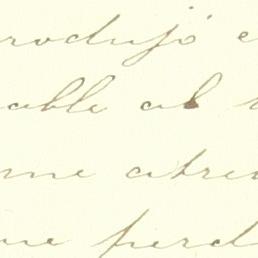 rodujo e
able al
me atre
ue perd